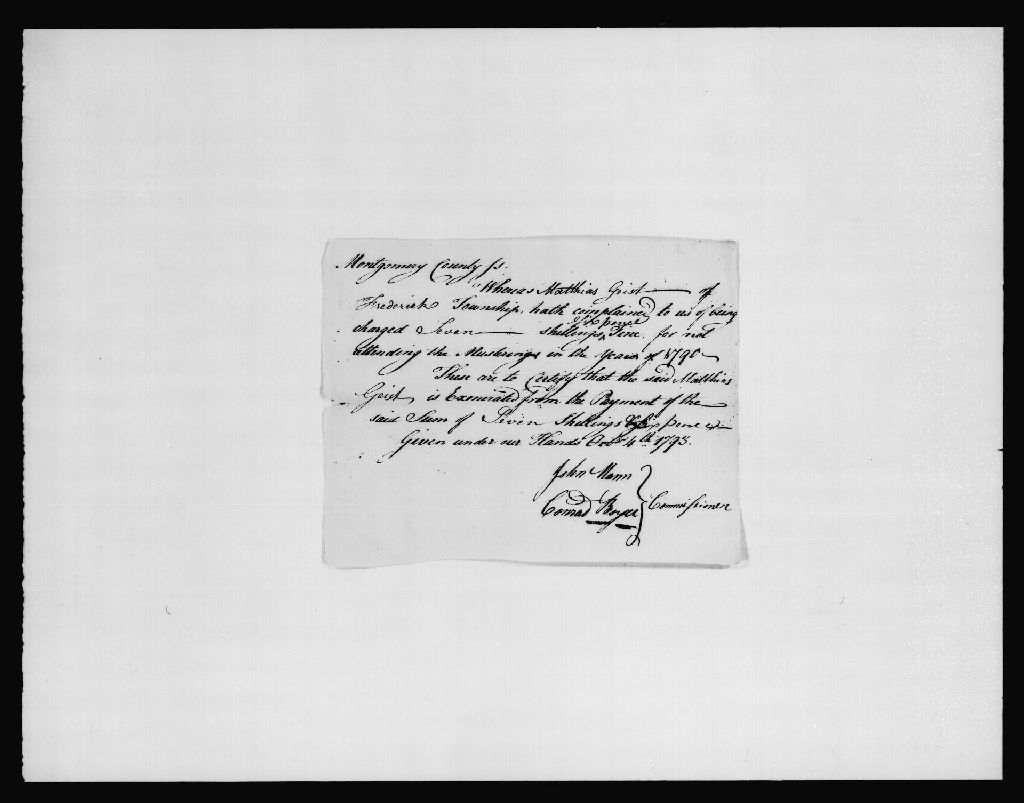 Montgomery County ss.
Whereas Matthias Grist of
Frederick Township, hath complained to us of being
six pence
charged Seven shillings, Fine for not
attending the Musterings in the Year of 1790
These are to Certify that the said Matthias
Grist is Exonerated from the Payment of the
said Sum of Seven Shillings Six pence
Given under our Hands Octr 4th 1793.
John Mann
Conrad Boyer Commissioner